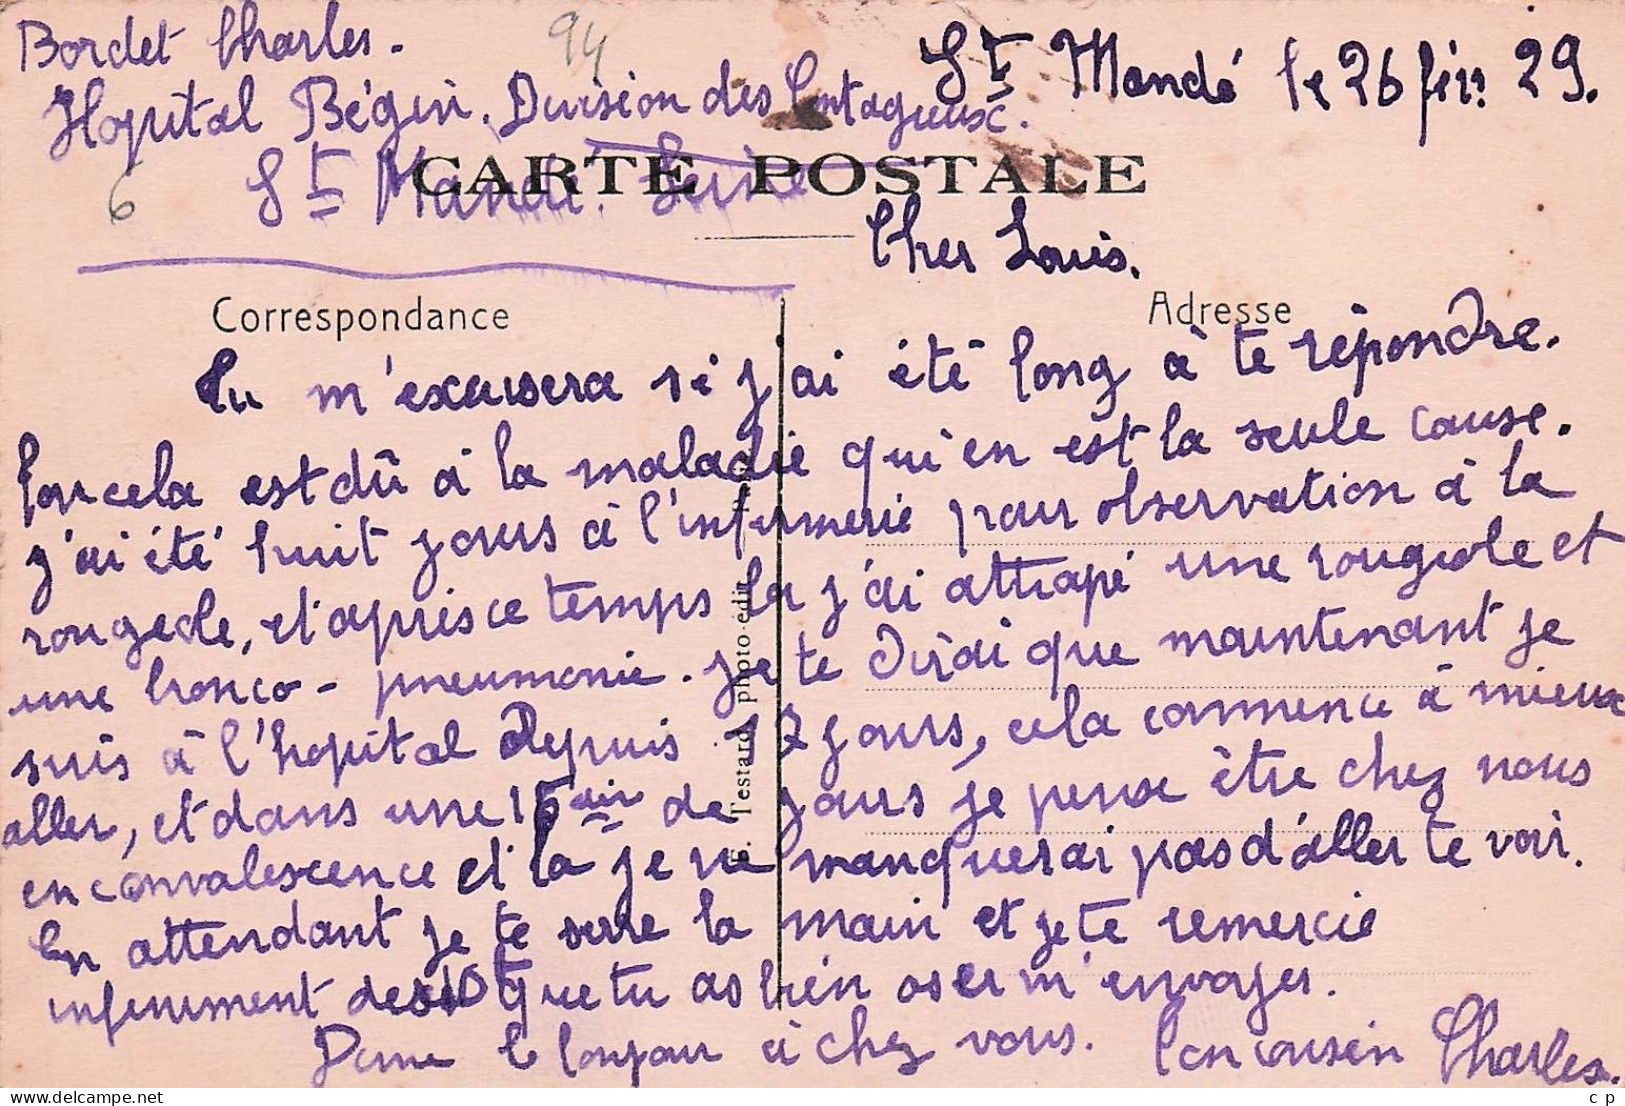 Bordet Charles.
94
St Mandé le 26 fév. 29.
Hopital Bégin. Division des Contagieux.
6
St Mandé. Seine
CARTE POSTALE
Cher Louis.
Correspondance
Adresse
Tu m'excusera si j'ai été long à te répondre.
cela est dû à la maladie qui en est la seule cause.
j'ai été huit jours à l'infirmerie pour observation à la
rougeole, et après ce temps la j'ai attrapé une rougeole et
une bronco-pneumonie. je te dirai que maintenant je
suis à l'hopital depuis 17 jours, cela commence à mieux
aller, et dans une 15aine de jours je pense être chez nous
en convalescence et la je ne manquerai pas d'aller te voir.
En attendant je te serre la main et je te remercie
infiniment des 10f que tu as bien oser m'envoyer.
Donne le bonjour à chez vous. Ton cousin Charles.
E. Testard photo-édit
c p